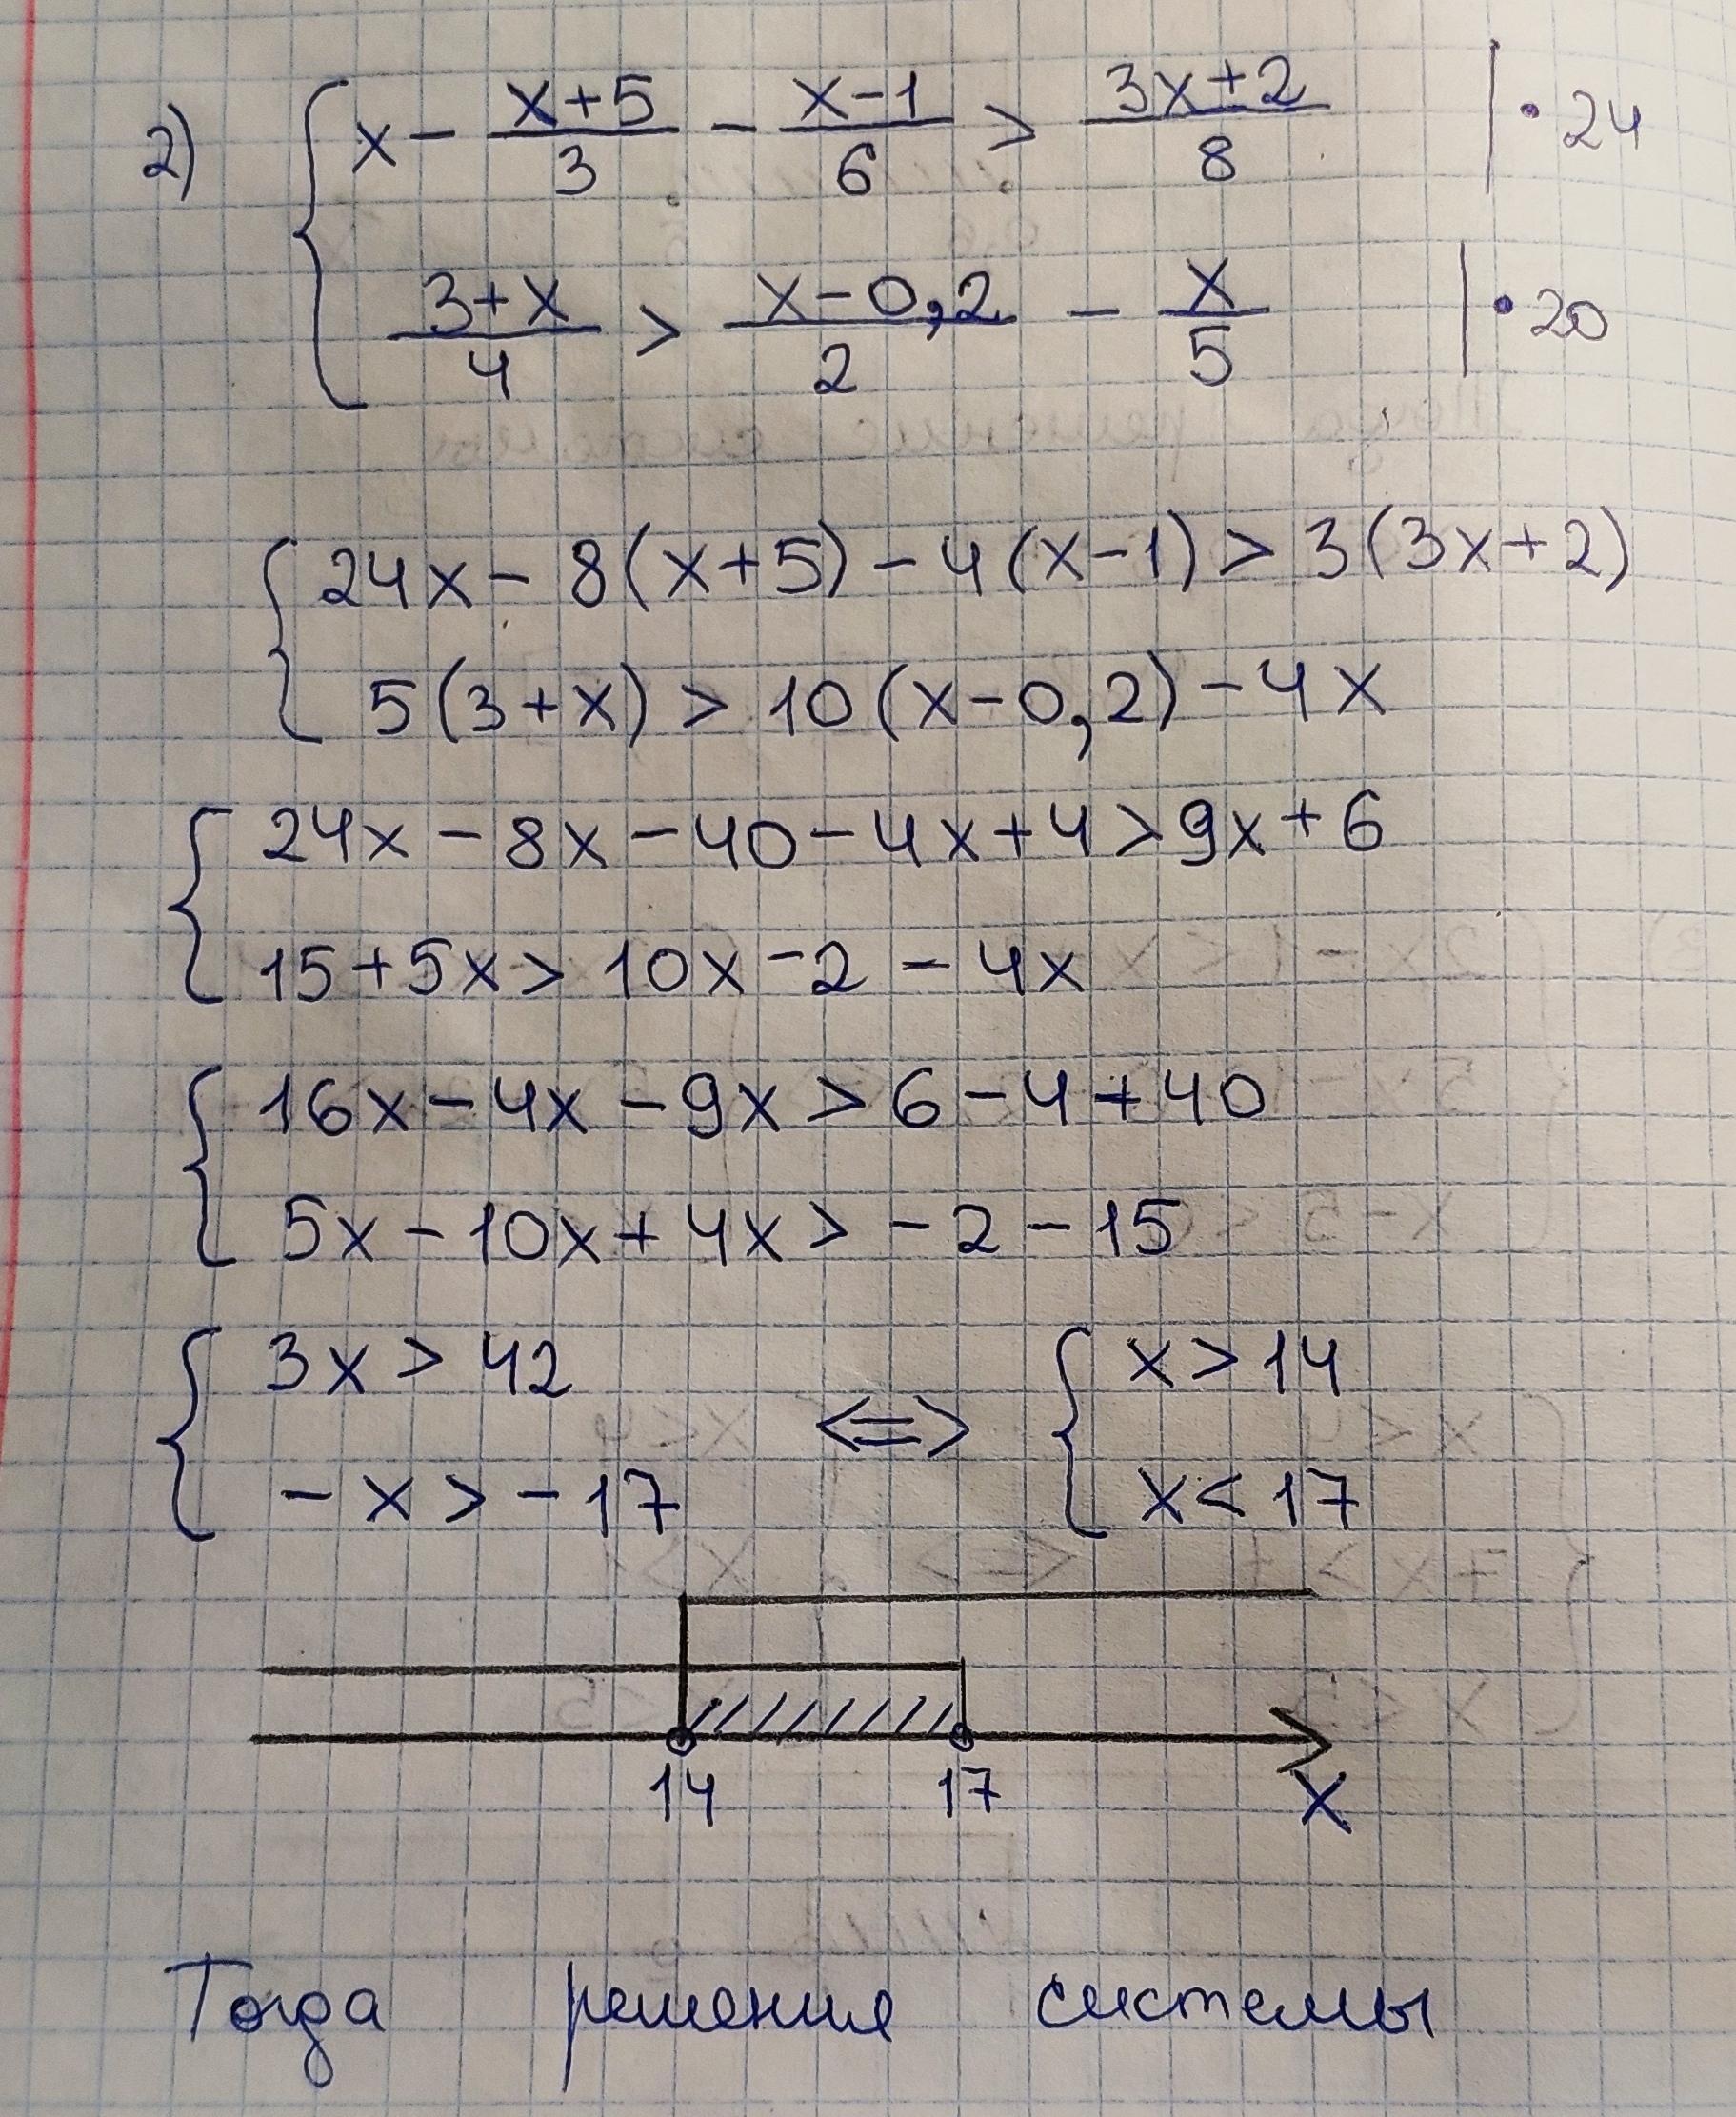 2) { x - (x+5)/3 - (x-1)/6 > (3x+2)/8 | • 24
(3+x)/4 > (x-0,2)/2 - x/5 | • 20
{ 24x - 8(x+5) - 4(x-1) > 3(3x+2)
5(3+x) > 10(x-0,2) - 4x
{ 24x - 8x - 40 - 4x + 4 > 9x + 6
15 + 5x > 10x - 2 - 4x
{ 16x - 4x - 9x > 6 - 4 + 40
5x - 10x + 4x > - 2 - 15
{ 3x > 42 <=> { x > 14
- x > - 17 x < 17
14 17 x
Тогда решение системы